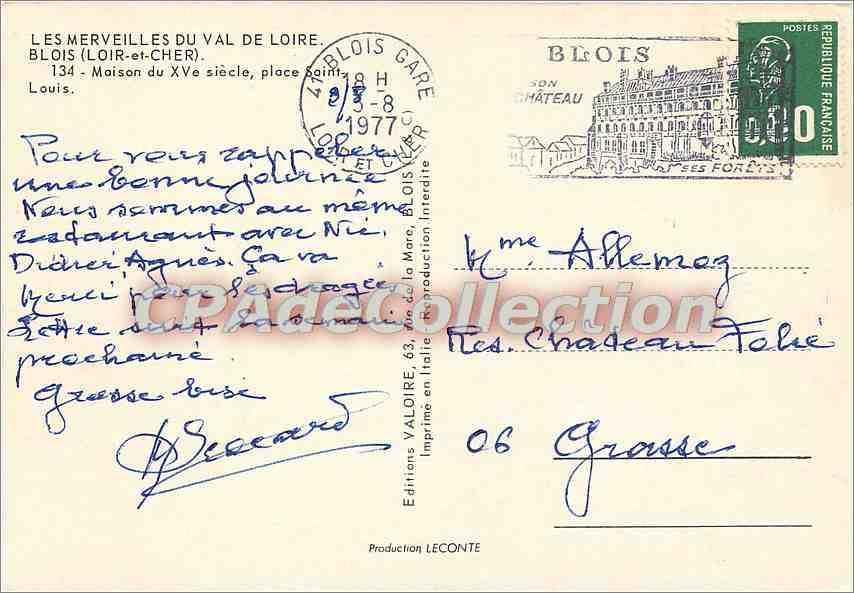 LES MERVEILLES DU VAL DE LOIRE.
BLOIS (LOIR-et-CHER).
134 - Maison du XVe siècle, place Saint-
Louis.
41 BLOIS GARE
18 H
3-8
1977
LOIR ET CHER
BLOIS
SON
CHÂTEAU
SES FORÊTS
POSTES
REPUBLIQUE FRANÇAISE
0,80
Pour vous rappeler
une bonne journée
Nous sommes au même
restaurant avec Nic.
Didier Agnès. Ça va
Merci pour les dragées
Lettre suit la semaine
prochaine.
Grosse bise
Editions VALOIRE, 63, rue de la Mare, BLOIS
Imprimé en Italie Reproduction Interdite
Mme Allemoz
Res. Chateau Folie
06 Grasse
Production LECONTE
CPAdeCollection